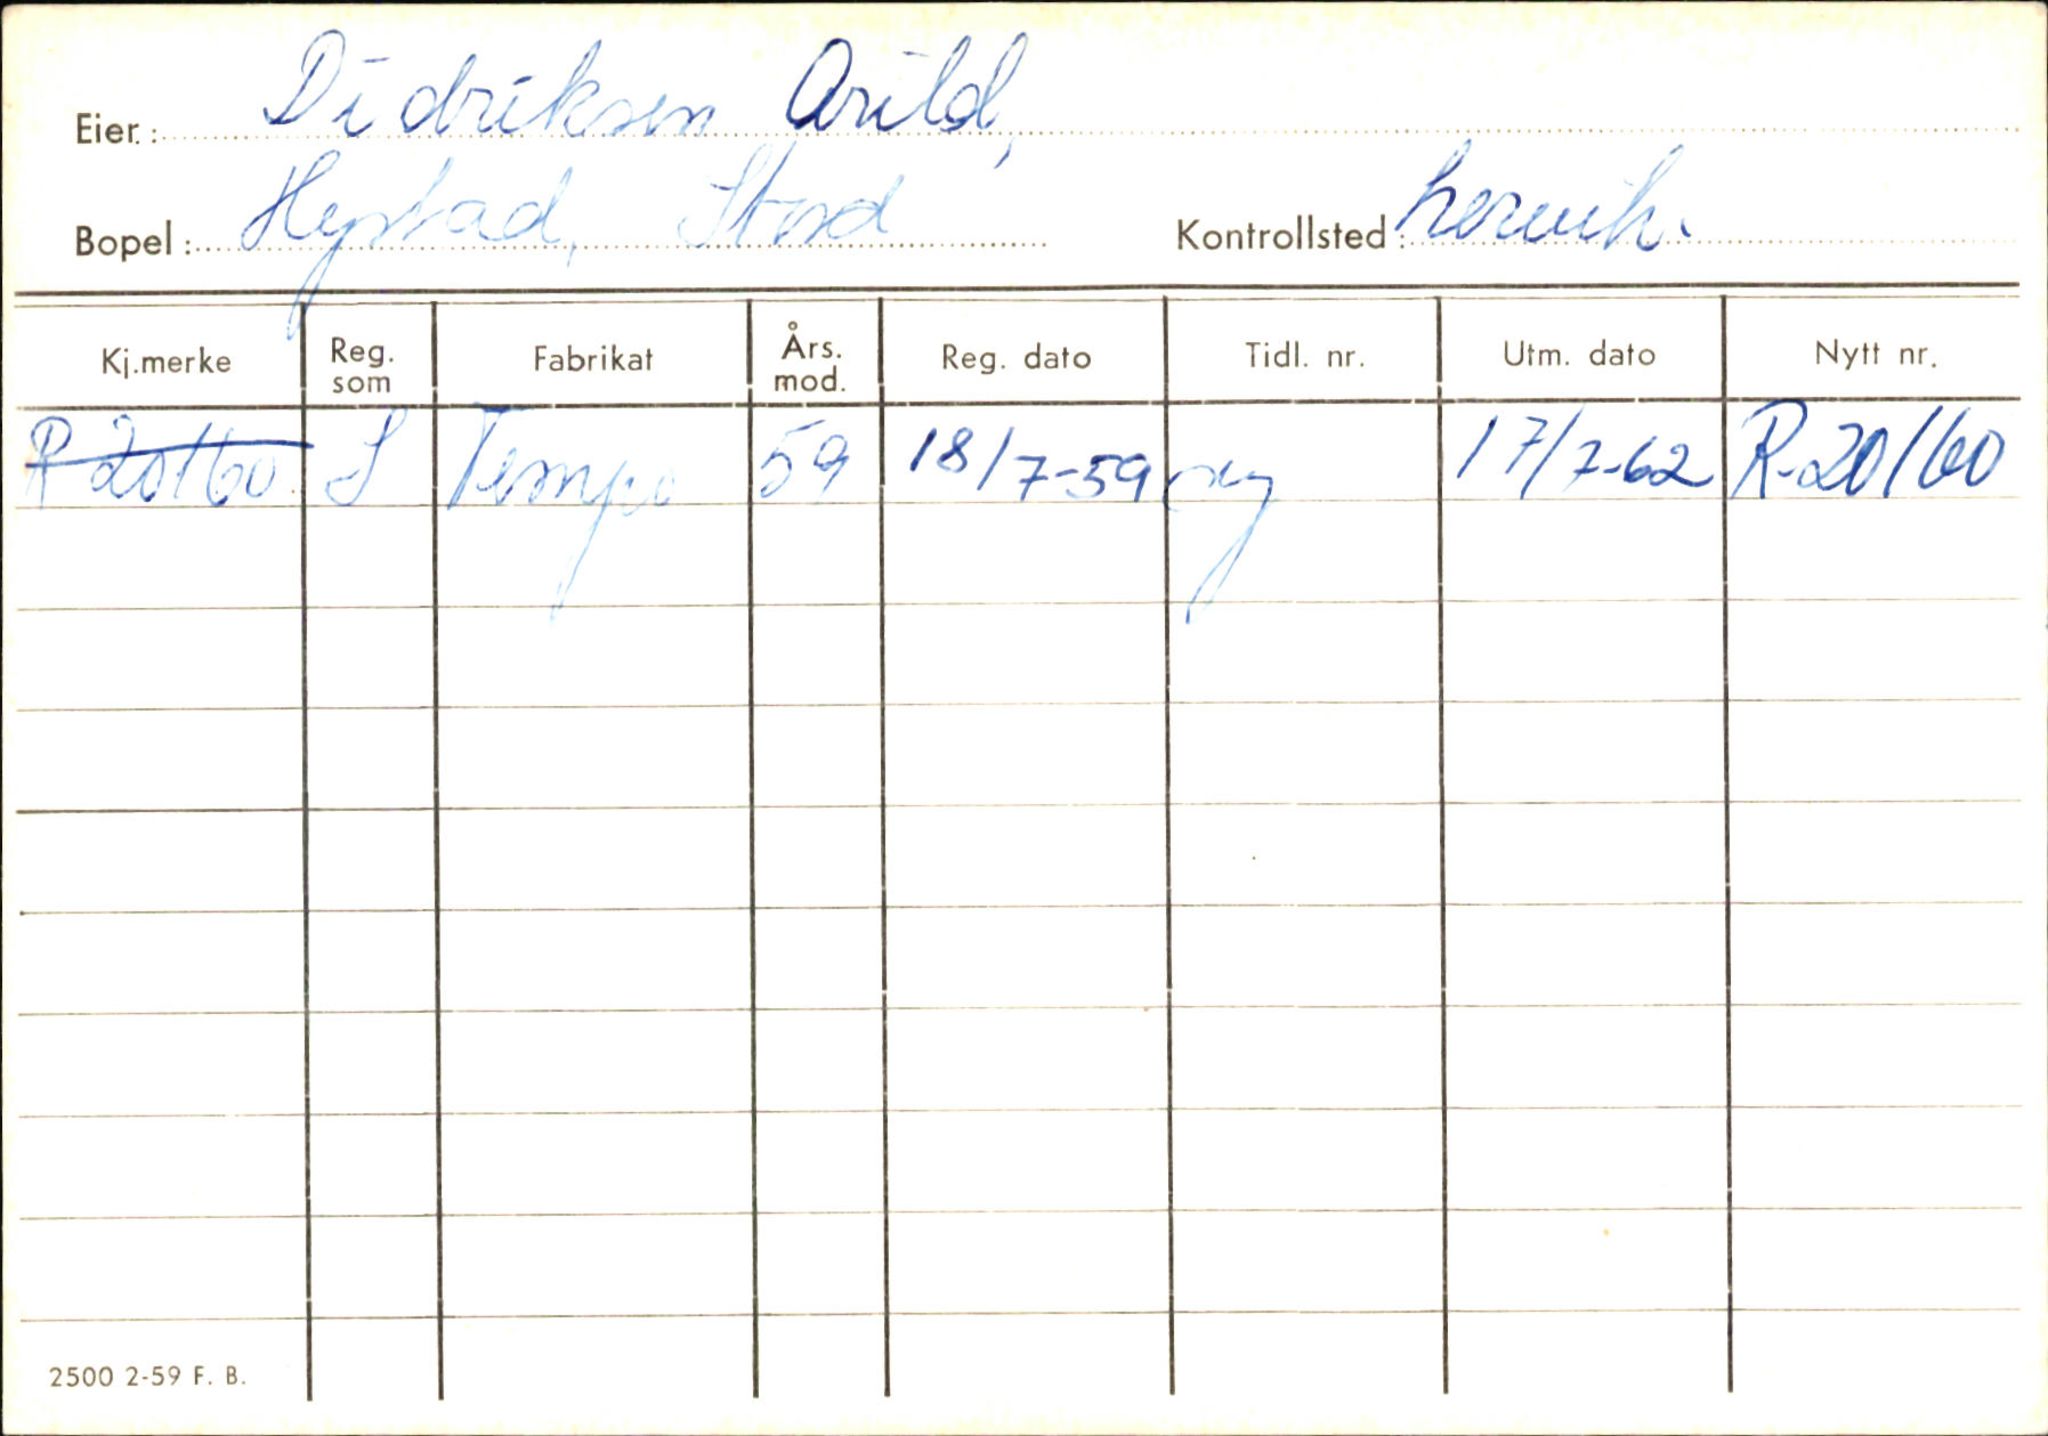 Eier.: Didriksen Arild,
Bopel: Hystad, Stord Kontrollsted: Lervik.
Kj.merke Reg. som Fabrikat Års. mod. Reg. dato Tidl. nr. Utm. dato Nytt nr.
R-20160 S Tempo 59 18/7-59 ny 17/7-62 R-20160
2500 2-59 F. B.